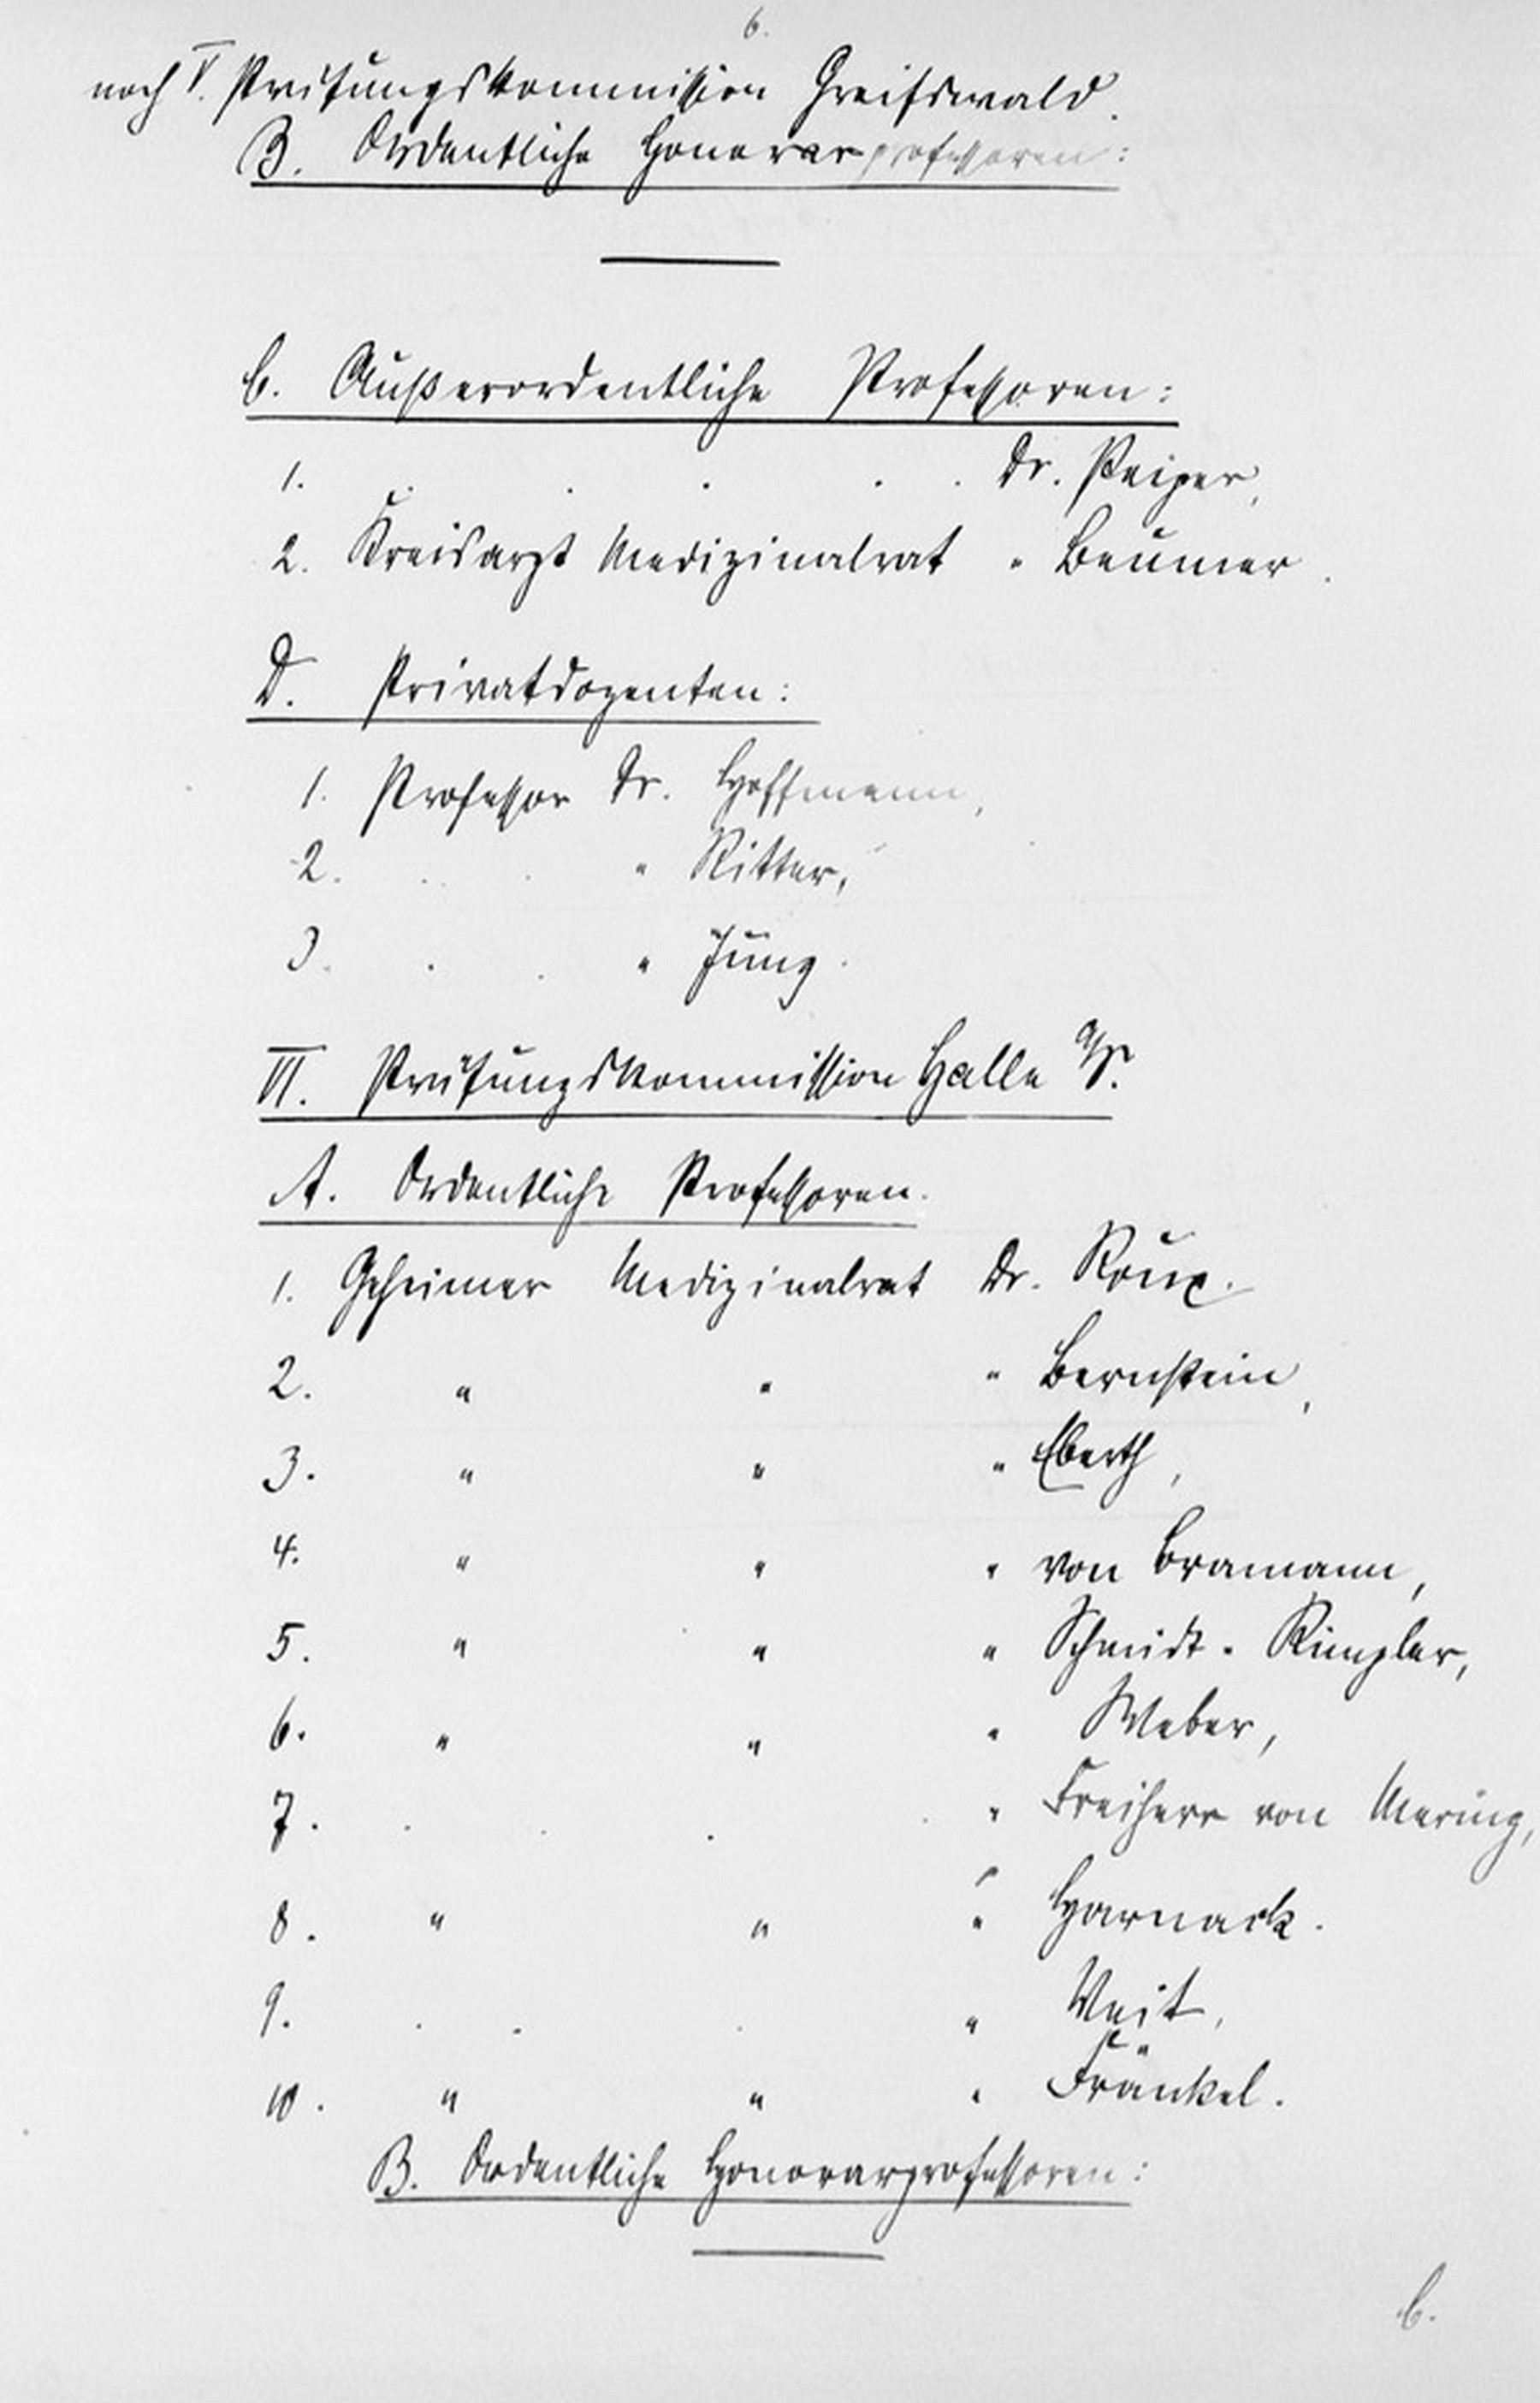 6.
noch V. Prüfungskommission Greifswald.
B. Ordentliche Honorarprofessoren:
C. Außerordentliche Professoren:
1. . . . . . Dr. Peiper,
2. Kreisarzt Medizinalrat " Beumer.
D. Privatdozenten:
1. Professor Dr. Hoffmann,
2. . . " Ritter,
3. . . " Jung.
VI. Prüfungskommission Halle a/S.
A. Ordentliche Professoren.
1. Geheimer Medizinalrat Dr. Roux.
2. " " " Bernstein,
3. " " " Eberth,
4. " " " von Bramann,
5. " " " Schmidt-Rimpler,
6. " " " Weber,
7. . . . . " Freiherr von Mering,
8. " " " Harnack.
9. . . . " Veit,
10. " " " Fränkel.
B. Ordentliche Honorarprofessoren:
C.